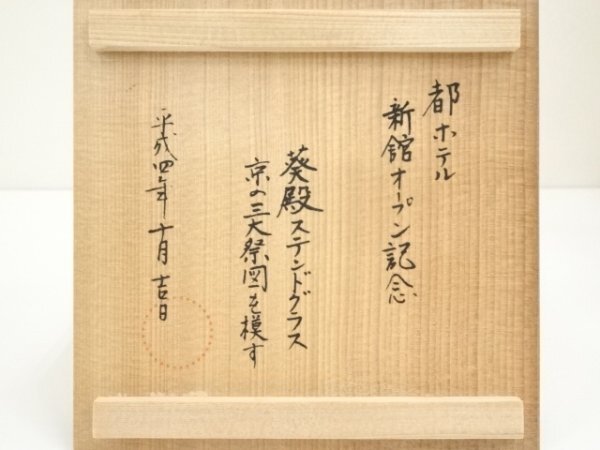 都ホテル
新館オープン記念
葵殿ステンドグラス
京の三大祭図を模す
平成四年十月吉日